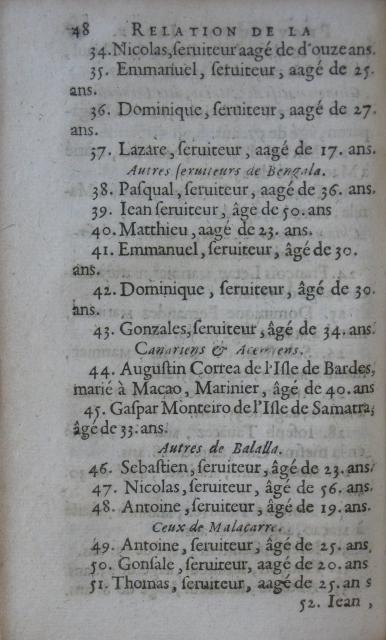 48 RELATION DE LA
34. Nicolas, ſeruiteur aagé de d'ouze ans.
35. Emmanuel, ſeruiteur, aagé de 25.
ans.
36. Dominique, ſeruiteur, aagé de 27.
ans.
37. Lazare, ſeruiteur, aagé de 17. ans.
Autres ſeruiteurs de Bengala.
38. Paſqual, ſeruiteur, aagé de 36. ans.
39. Iean ſeruiteur, âge de 50. ans
40. Matthieu, aagé de 23. ans.
41. Emmanuel, ſeruiteur, âgé de 30.
ans.
42. Dominique, ſeruiteur, âgé de 30.
ans.
43. Gonzales, ſeruiteur, âgé de 34. ans.
Canariens & Acemiens.
44. Auguſtin Correa de l'Iſle de Bardes,
marié à Macao, Marinier, âgé de 40. ans
45. Gaſpar Monteiro de l'Iſle de Samatra,
âgé de 33. ans.
Autres de Balalla.
46. Sebaſtien, ſeruiteur, âgé de 23. ans.
47. Nicolas, ſeruiteur, âgé de 56. ans.
48. Antoine, ſeruiteur, âgé de 19. ans.
Ceux de Malacarre.
49. Antoine, ſeruiteur, âgé de 25. ans.
50. Gonſale, ſeruiteur, aagé de 20. ans
51. Thomas, ſeruiteur, aagé de 25. an s
52. Iean,